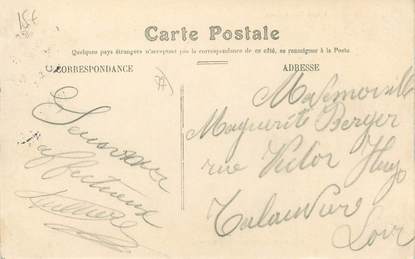 15€
Carte Postale
Quelques pays étrangers n'acceptant pas la correspondance de ce côté, se renseigner à la Poste.
CORRESPONDANCE
ADRESSE
Souvenir
affectueux
Mademoiselle
Marguerite Berger
rue Victor Hugo
Talaudière
Loire